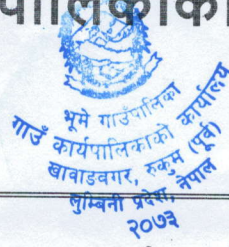 पालिकाको
भूमे गाउँपालिका
गाउँ कार्यपालिकाको कार्यालय
खावाङवगर, रुकुम (पूर्व)
लुम्बिनी प्रदेश, नेपाल
२०७३